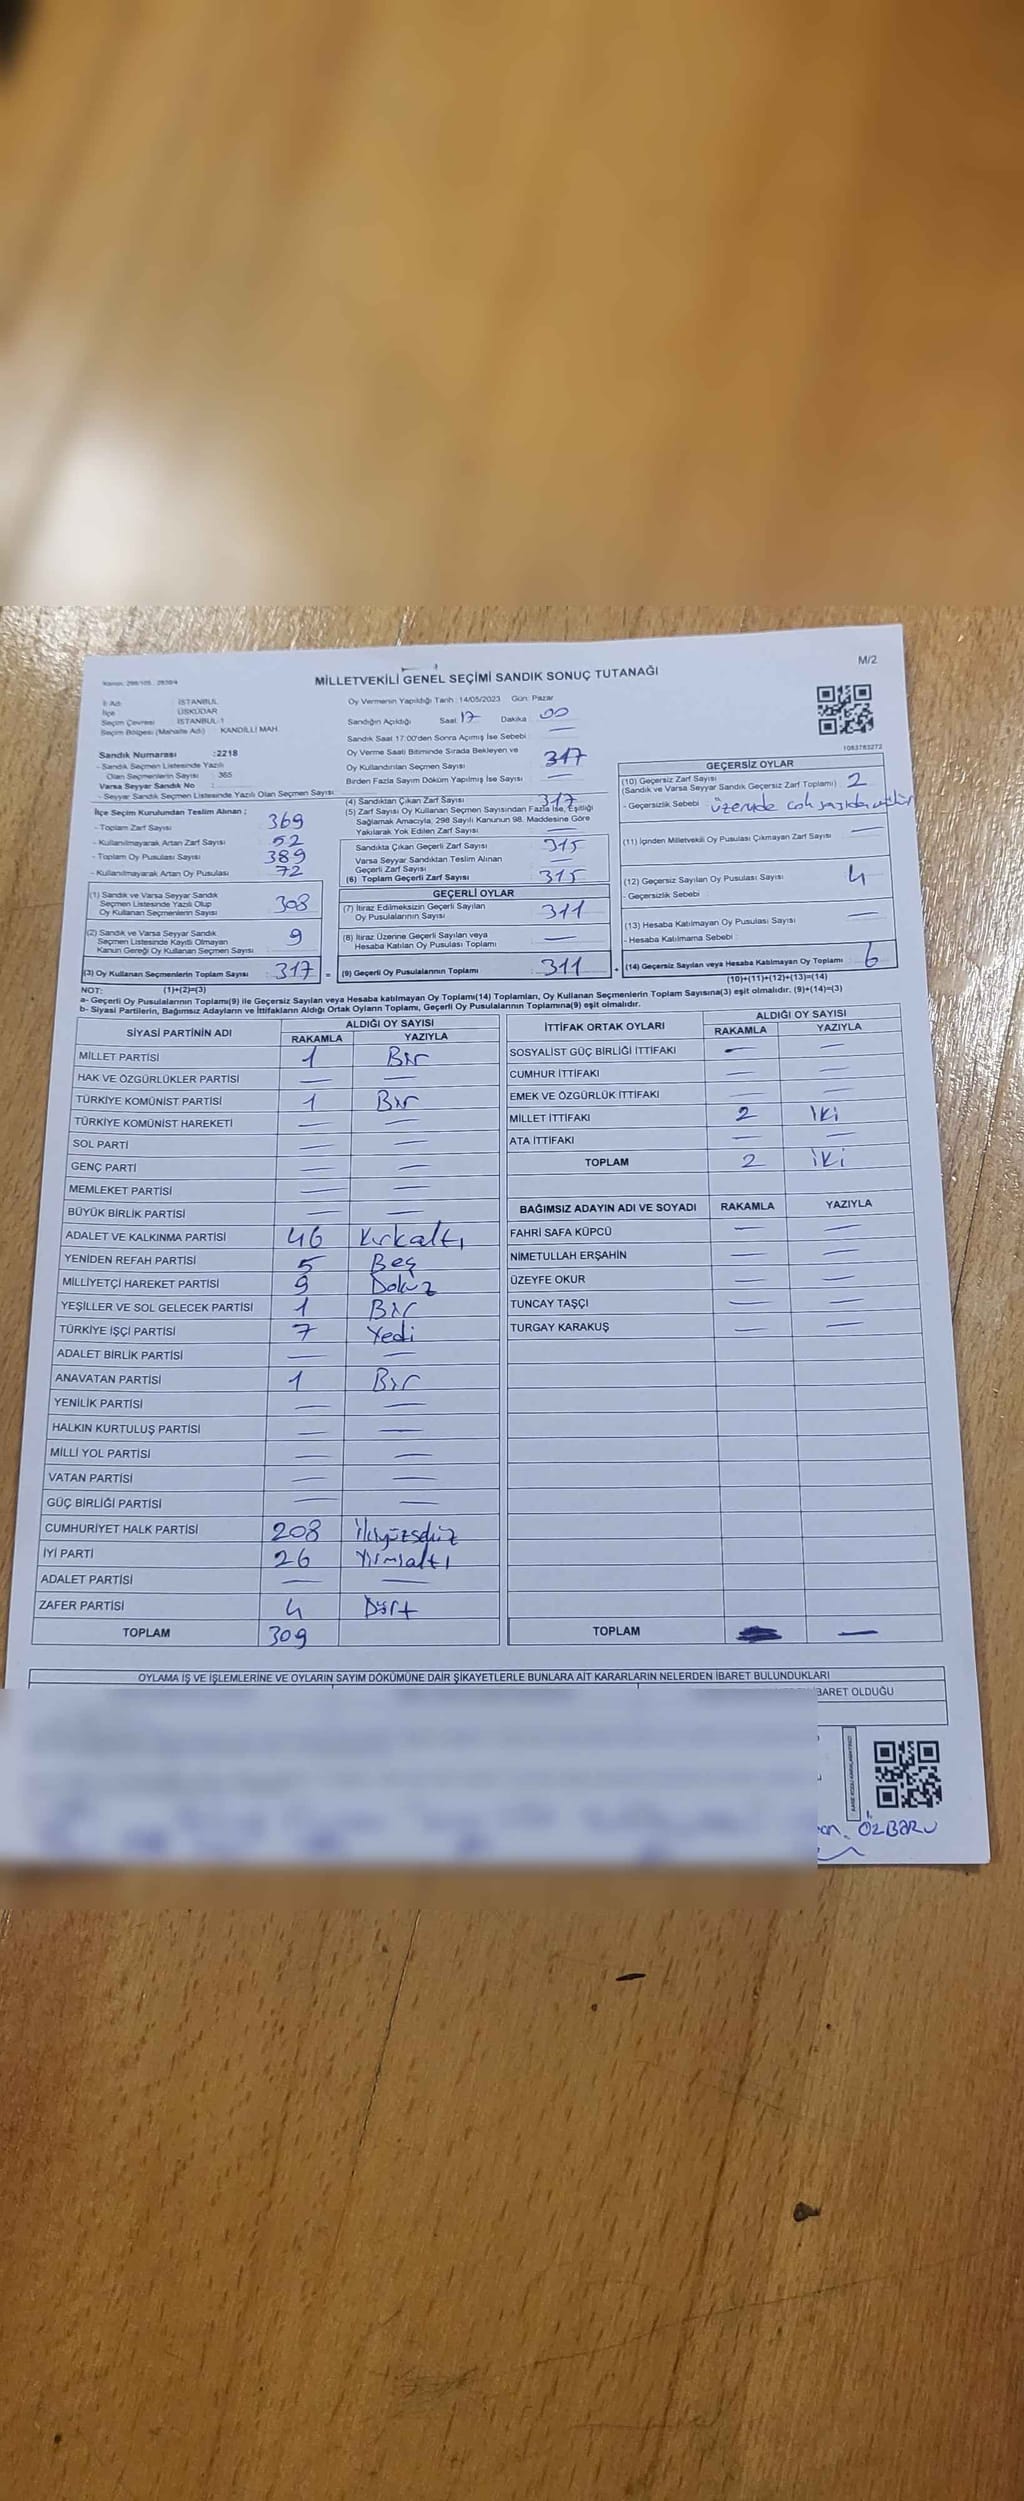 M/2
MİLLETVEKİLİ GENEL SEÇİMİ SANDIK SONUÇ TUTANAĞI
İl Adı : İSTANBUL
İlçe : ÜSKÜDAR
Seçim Çevresi : İSTANBUL-1
Seçim Bölgesi (Mahalle Adı) KANDİLLİ MAH
Sandık Numarası :2218
- Sandık Seçmen Listesinde Yazılı
Olan Seçmenlerin Sayısı : 365
Varsa Seyyar Sandık No :
- Seyyar Sandık Seçmen Listesinde Yazılı Olan Seçmen Sayısı
Oy Vermenin Yapıldığı Tarih : 14/05/2023 Gün: Pazar
Sandığın Açıldığı Saat: 17 Dakika : 00
Sandık Saat 17:00'den Sonra Açımış İse Sebebi —
Oy Verme Saati Bitiminde Sırada Bekleyen ve
Oy Kullandırılan Seçmen Sayısı 317
Birden Fazla Sayım Döküm Yapılmış İse Sayısı : —
1083783272
İlçe Seçim Kurulundan Teslim Alınan ;
- Toplam Zarf Sayısı : 369
- Kullanılmayarak Artan Zarf Sayısı : 52
- Toplam Oy Pusulası Sayısı : 389
- Kullanılmayarak Artan Oy Pusulası : 72
(1) Sandık ve Varsa Seyyar Sandık
Seçmen Listesinde Yazılı Olup
Oy Kullanan Seçmenlerin Sayısı : 308
(2) Sandık ve Varsa Seyyar Sandık
Seçmen Listesinde Kayıtlı Olmayan
Kanun Gereği Oy Kullanan Seçmen Sayısı : 9
(3) Oy Kullanan Seçmenlerin Toplam Sayısı : 317 =
(4) Sandıktan Çıkan Zarf Sayısı : 317
(5) Zarf Sayısı Oy Kullanan Seçmen Sayısından Fazla İse, Eşitliği
Sağlamak Amacıyla, 298 Sayılı Kanunun 98. Maddesine Göre
Yakılarak Yok Edilen Zarf Sayısı : —
Sandıkta Çıkan Geçerli Zarf Sayısı : 315
Varsa Seyyar Sandıktan Teslim Alınan
Geçerli Zarf Sayısı : —
(6) Toplam Geçerli Zarf Sayısı : 315
GEÇERLİ OYLAR
(7) İtiraz Edilmeksizin Geçerli Sayılan
Oy Pusulalarının Sayısı : 311
(8) İtiraz Üzerine Geçerli Sayılan veya
Hesaba Katılan Oy Pusulası Toplamı : —
(9) Geçerli Oy Pusulalarının Toplamı : 311 +
GEÇERSİZ OYLAR
(10) Geçersiz Zarf Sayısı
(Sandık ve Varsa Seyyar Sandık Geçersiz Zarf Toplamı) : 2
- Geçersizlik Sebebi : üzerinde
(11) İçinden Milletvekili Oy Pusulası Çıkmayan Zarf Sayısı : —
(12) Geçersiz Sayılan Oy Pusulası Sayısı : 4
- Geçersizlik Sebebi
(13) Hesaba Katılmayan Oy Pusulası Sayısı : —
- Hesaba Katılmama Sebebi
(14) Geçersiz Sayılan veya Hesaba Katılmayan Oy Toplamı : 6
NOT: (1)+(2)=(3)
(10)+(11)+(12)+(13)=(14)
a- Geçerli Oy Pusulalarının Toplamı(9) ile Geçersiz Sayılan veya Hesaba katılmayan Oy Toplamı(14) Toplamları, Oy Kullanan Seçmenlerin Toplam Sayısına(3) eşit olmalıdır. (9)+(14)=(3)
b- Siyasi Partilerin, Bağımsız Adayların ve İttifakların Aldığı Ortak Oyların Toplamı, Geçerli Oy Pusulalarının Toplamına(9) eşit olmalıdır.
SİYASİ PARTİNİN ADI ALDIĞI OY SAYISI
RAKAMLA YAZIYLA
MİLLET PARTİSİ 1 Bir
HAK VE ÖZGÜRLÜKLER PARTİSİ — —
TÜRKİYE KOMÜNİST PARTİSİ 1 Bir
TÜRKİYE KOMÜNİST HAREKETİ — —
SOL PARTİ — —
GENÇ PARTİ — —
MEMLEKET PARTİSİ — —
BÜYÜK BİRLİK PARTİSİ — —
ADALET VE KALKINMA PARTİSİ 46 Kırkaltı
YENİDEN REFAH PARTİSİ 5 Beş
MİLLİYETÇİ HAREKET PARTİSİ 9 Dokuz
YEŞİLLER VE SOL GELECEK PARTİSİ 1 Bir
TÜRKİYE İŞÇİ PARTİSİ 7 Yedi
ADALET BİRLİK PARTİSİ — —
ANAVATAN PARTİSİ 1 Bir
YENİLİK PARTİSİ — —
HALKIN KURTULUŞ PARTİSİ — —
MİLLİ YOL PARTİSİ — —
VATAN PARTİSİ — —
GÜÇ BİRLİĞİ PARTİSİ — —
CUMHURİYET HALK PARTİSİ 208 İkiyüzsekiz
İYİ PARTİ 26 Yirmialtı
ADALET PARTİSİ — —
ZAFER PARTİSİ 4 Dört
TOPLAM 309
İTTİFAK ORTAK OYLARI ALDIĞI OY SAYISI
RAKAMLA YAZIYLA
SOSYALİST GÜÇ BİRLİĞİ İTTİFAKI — —
CUMHUR İTTİFAKI — —
EMEK VE ÖZGÜRLÜK İTTİFAKI — —
MİLLET İTTİFAKI 2 İki
ATA İTTİFAKI — —
TOPLAM 2 İki
BAĞIMSIZ ADAYIN ADI VE SOYADI RAKAMLA YAZIYLA
FAHRİ SAFA KÜPCÜ — —
NİMETULLAH ERŞAHİN — —
ÜZEYFE OKUR — —
TUNCAY TAŞÇI — —
TURGAY KARAKUŞ — —
TOPLAM —
OYLAMA İŞ VE İŞLEMLERİNE VE OYLARIN SAYIM DÖKÜMÜNE DAİR ŞİKAYETLERLE BUNLARA AİT KARARLARIN NELERDEN İBARET BULUNDUKLARI
İBARET OLDUĞU
ÖZBARU